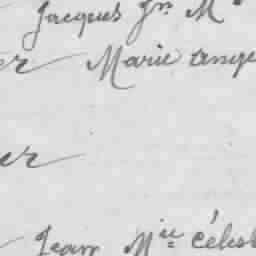 Jacques Jn M
er Marie ange
er
Jean Mie Célest